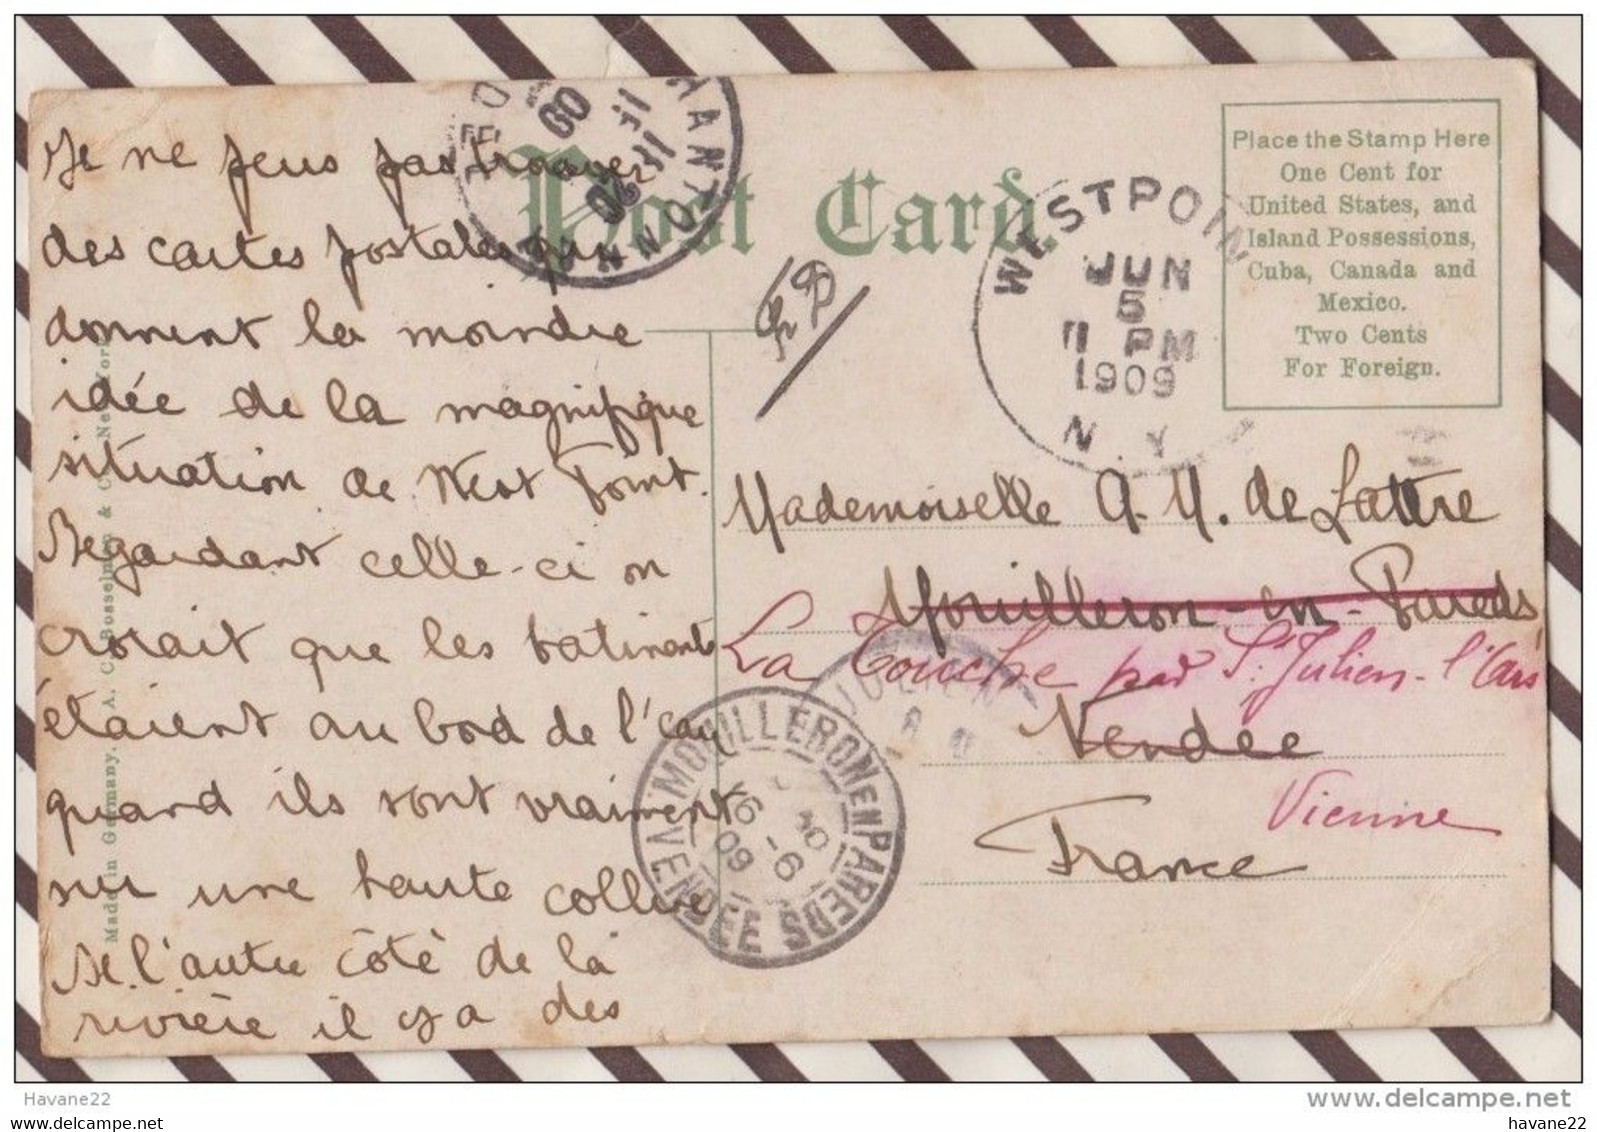 Je ne peux pas trouver
des cartes postales qui
donnent la moindre
idée de la magnifique
situation de West Point.
Regardant celle-ci on
croirait que les batiments
étaient au bord de l'eau
quand ils sont vraiment
sur une haute colline
De l'autre côté de la
rivière il y a des
Made in Germany. A. C. Bosselman & C. New York
Post Card.
Place the Stamp Here
One Cent for
United States, and
Island Possessions,
Cuba, Canada and
Mexico.
Two Cents
For Foreign.
WEST POIN
JUN
5
PM
1909
N.Y
Mademoiselle A. M. de Lattre
Mouilleron-en-Pareds
La Touche par St Julien-l'Ars
Vendée
Vienne
France
MOUILLERON EN PAREDS
VENDEE
09
JULIEN
CHANTONNAY
09
Havane22
www.delcampe.net
havane22